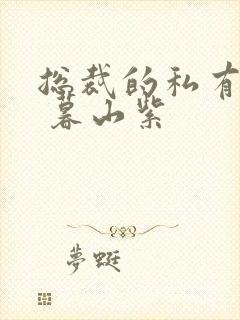 总裁的私有
暮山紫
夢蜓